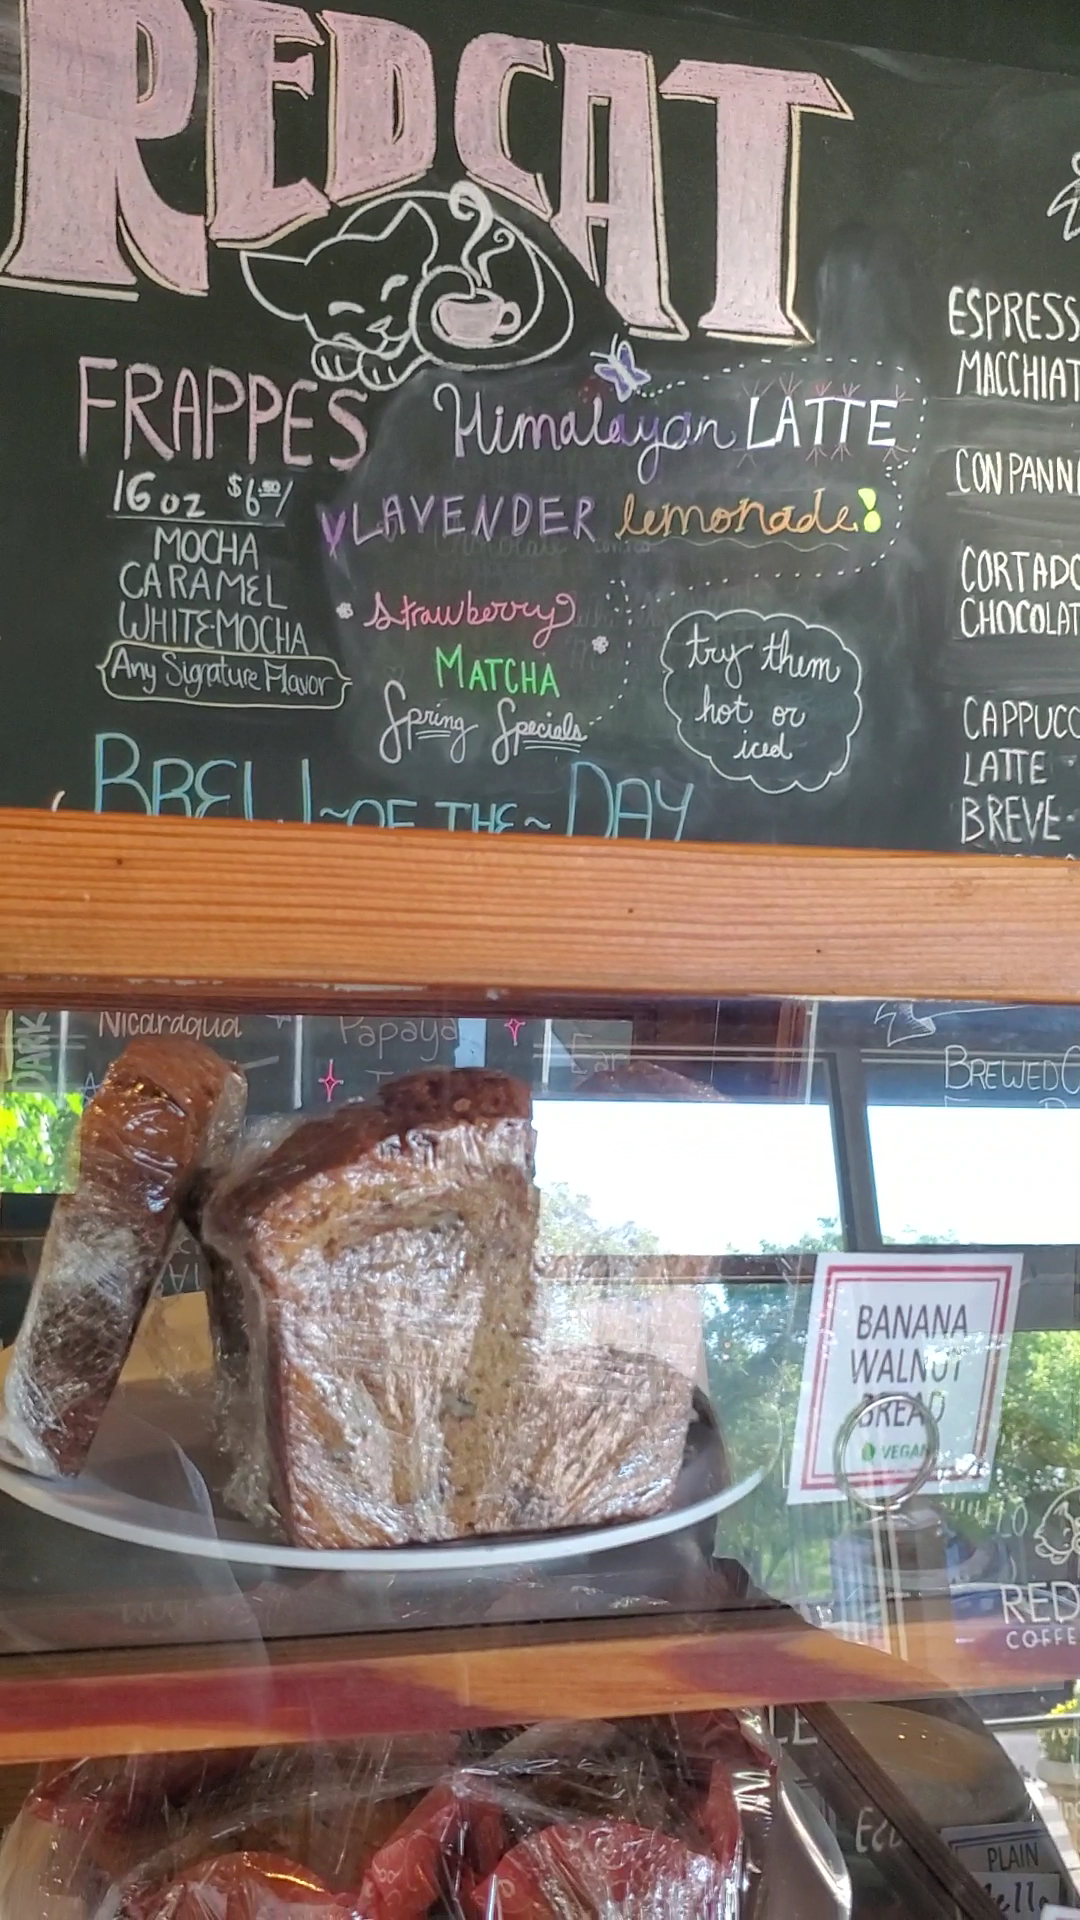 REDCAT
FRAPPES
16oz $6.50/
MOCHA
CARAMEL
WHITEMOCHA
Any Signature Flavor
Himalayan LATTE
LAVENDER lemonade!
Strawberry
MATCHA
Spring Specials
try them
hot or
iced
BREW ~OF THE~ DAY
ESPRESS
MACCHIAT
CON PANN
CORTADO
CHOCOLAT
CAPPUCC
LATTE
BREVE
DARK
Nicaragua
Papaya
Ear
BREWED
BANANA
WALNUT
BREAD
VEGAN
RED
COFFE
PLAIN